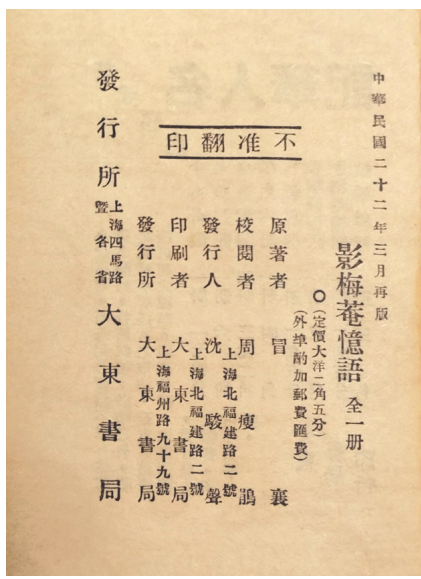 中華民國二十二年三月再版
影梅菴憶語 全一册
(定價大洋二角五分)
(外埠酌加郵費匯費)
不准翻印
原著者 冒襄
校閱者 周瘦鵑
上海北福建路二號
發行人 沈駿聲
上海北福建路二號
印刷者 大東書局
上海福州路九十九號
發行所 大東書局
發行所 上海四馬路暨各省 大東書局